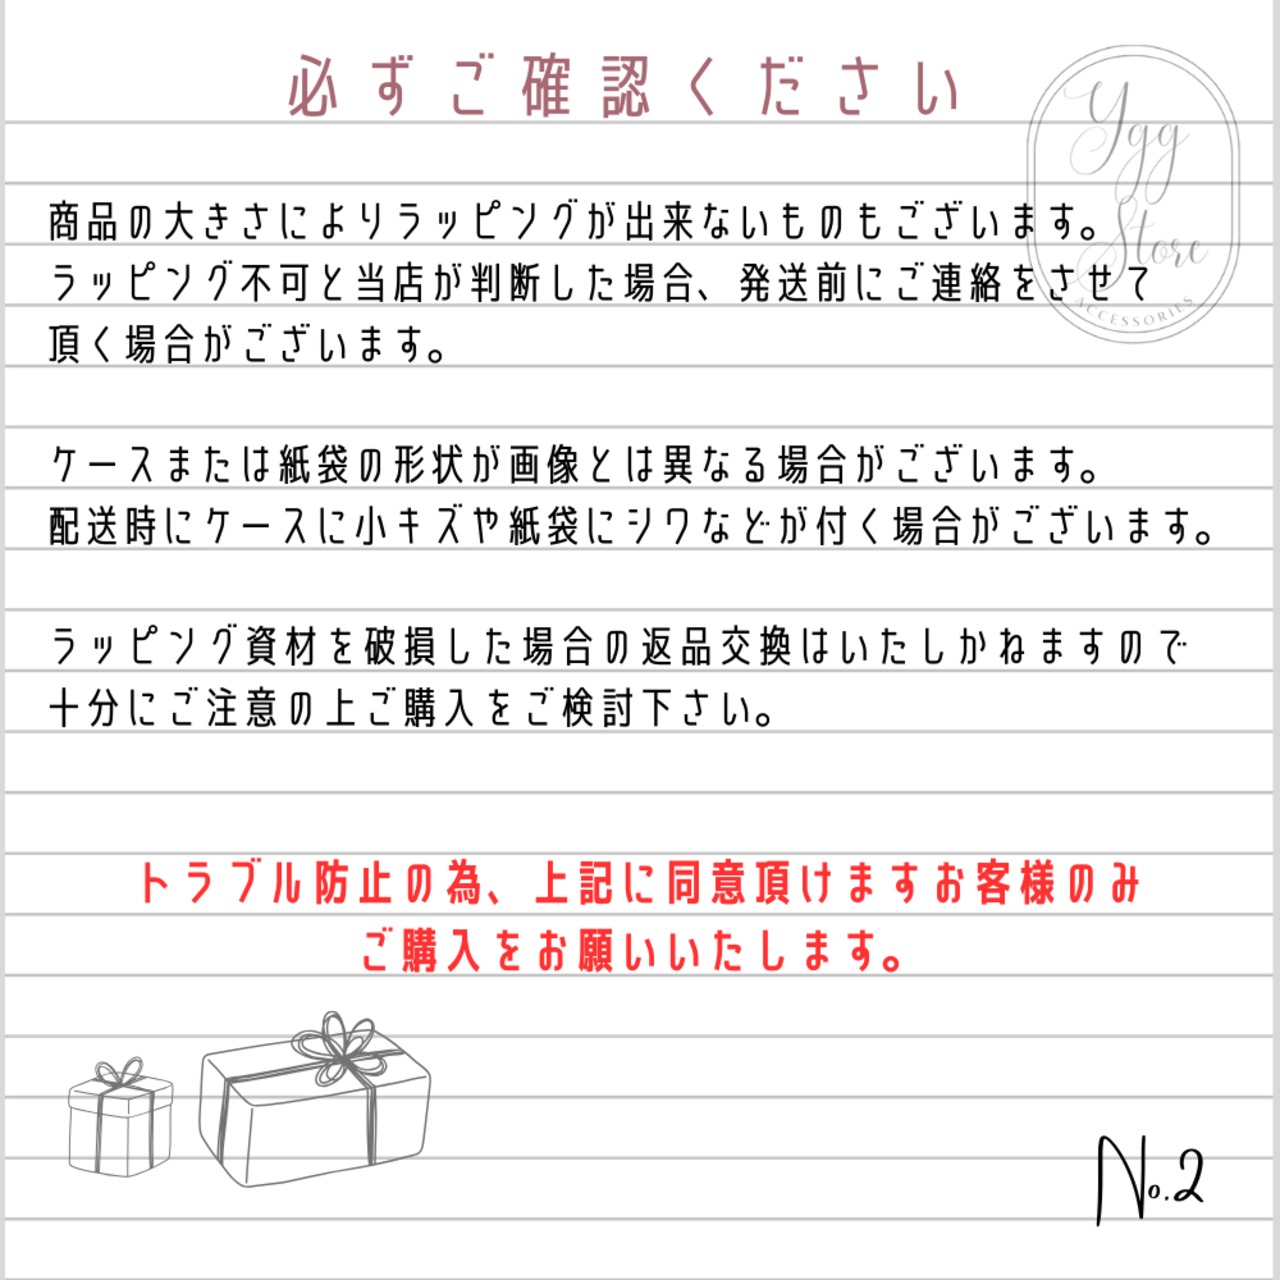 必ずご確認ください
Ygg
Store
ACCESSORIES
商品の大きさによりラッピングが出来ないものもございます。
ラッピング不可と当店が判断した場合、発送前にご連絡をさせて
頂く場合がございます。
ケースまたは紙袋の形状が画像とは異なる場合がございます。
配送時にケースに小キズや紙袋にシワなどが付く場合がございます。
ラッピング資材を破損した場合の返品交換はいたしかねますので
十分にご注意の上ご購入をご検討下さい。
トラブル防止の為、上記に同意頂けますお客様のみ
ご購入をお願いいたします。
No.2